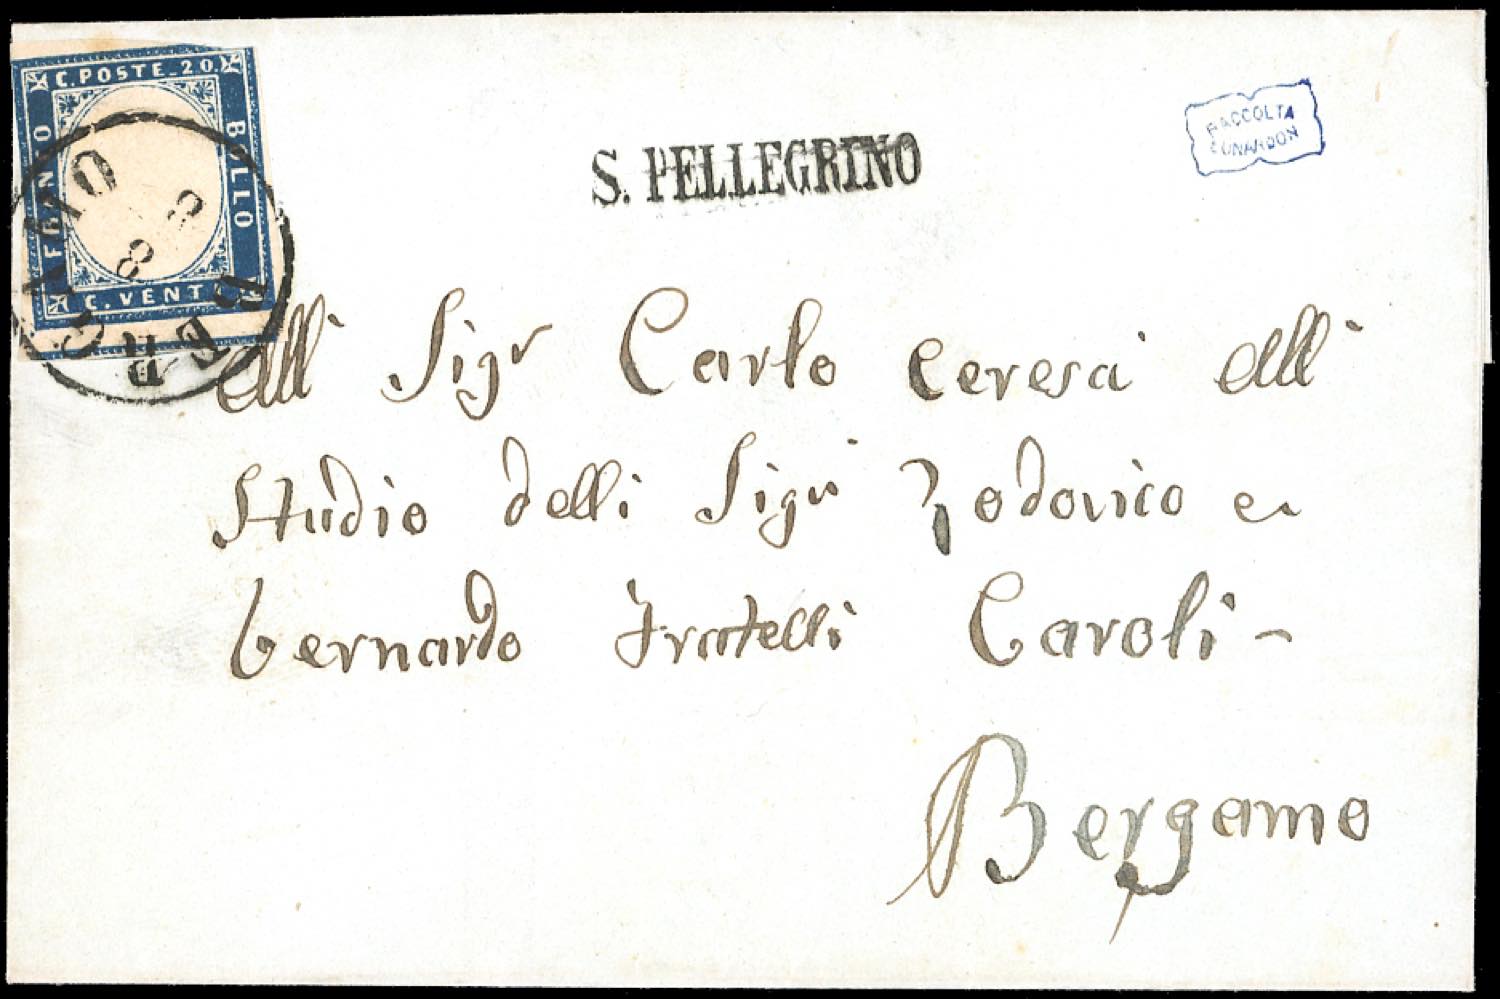 C. POSTE 20.
FRANCO
BOLLO
C. VENT
BERGAMO
8
8
S. PELLEGRINO
RACCOLTA
LUNARDON
Alli Sigr Carlo Ceresa alli
Studio delli Sigri Lodovico e
Bernardo Fratelli Caroli -
Bergamo